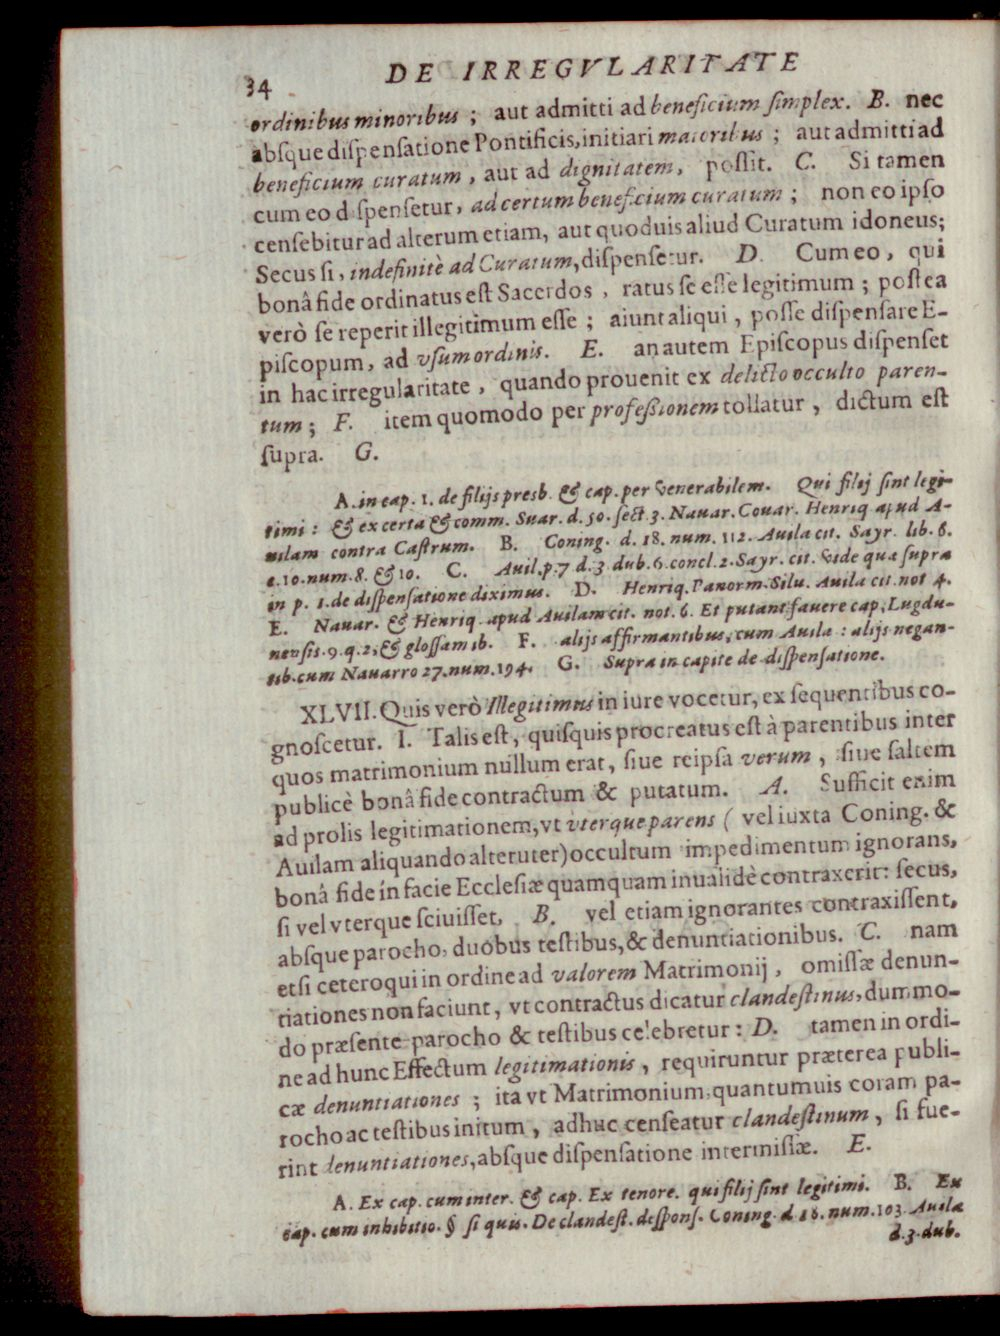 34 DE IRREGVLARITATE
ordinibus minoribus ; aut admitti ad beneficium ſimplex. B. nec
abſque diſpenſatione Pontificis, initiari maioribus ; aut admitti ad
beneficium curatum , aut ad dignitatem, poſſit. C. Si tamen
cum eo diſpenſetur, ad certum beneficium curatum ; non eo ipſo
cenſebitur ad alterum etiam, aut quoduis aliud Curatum idoneus;
Secus ſi, indefinitè ad Curatum, diſpenſetur. D. Cum eo, qui
bonâ fide ordinatus eſt Sacerdos , ratus ſe eſſe legitimum ; poſtea
verò ſe reperit illegitimum eſſe ; aiunt aliqui , poſſe diſpenſare E-
piſcopum, ad vſum ordinis. E. an autem Epiſcopus diſpenſet
in hac irregularitate , quando prouenit ex delicto occulto paren-
tum ; F. item quomodo per profeſsionem tollatur , dictum eſt
ſupra. G.
A. in cap. 1. de filijs presb. & cap. per venerabilem. Qui filij ſint legi-
timi : & ex certa & comm. Suar. d. 50. ſect. 3. Nauar. Couar. Henriq apud A-
uilam contra Caſtrum. B. Coning. d. 18. num. 112. Auila cit. Sayr. lib. 6.
c. 10. num. 8. & 10. C. Auil. p. 7 d. 3 dub. 6. concl. 2. Sayr. cit. vide quæ ſupra
in p. 1. de diſpenſatione diximus. D. Henriq. Panorm. Silu. Auila cit. not 4.
E. Nauar. & Henriq. apud Auilam cit. not. 6. Et putant fauere cap, Lugdu-
nenſis. 9. q. 2, & gloſſam ib. F. alijs affirmantibus, cum Auila : alijs negan-
tib. cum Nauarro 27. num. 194. G. Supra in capite de diſpenſatione.
XLVII. Quis verò Illegitimus in iure vocetur, ex ſequentibus co-
gnoſcetur. I. Talis eſt, quiſquis procreatus eſt à parentibus inter
quos matrimonium nullum erat, ſiue reipſa verum , ſiue ſaltem
publicè bonâ fide contractum & putatum. A. Sufficit enim
ad prolis legitimationem, vt vterque parens ( vel iuxta Coning. &
Auilam aliquando alteruter) occultum impedimentum ignorans,
bonâ fide in facie Eccleſiæ quamquam inualidè contraxerit: ſecus,
ſi vel vterque ſciuiſſet, B. vel etiam ignorantes contraxiſſent,
abſque parocho, duobus teſtibus, & denuntiationibus. C. nam
etſi ceteroqui in ordine ad valorem Matrimonij , omiſſæ denun-
tiationes non faciunt, vt contractus dicatur clandeſtinus, dummo-
do præſente parocho & teſtibus celebretur : D. tamen in ordi-
ne ad hunc Effectum legitimationis , requiruntur præterea publi-
cæ denuntiationes ; ita vt Matrimonium, quantumuis coram pa-
rocho ac teſtibus initum , adhuc cenſeatur clandeſtinum , ſi fue-
rint denuntiationes, abſque diſpenſatione intermiſſæ. E.
A. Ex cap. cum inter. & cap. Ex tenore. qui filij ſint legitimi. B. Ex
cap. cum inhibitio. § ſi quis. De clandeſt. deſponſ. Coning. d 18. num. 103. Auila
d. 3. dub.